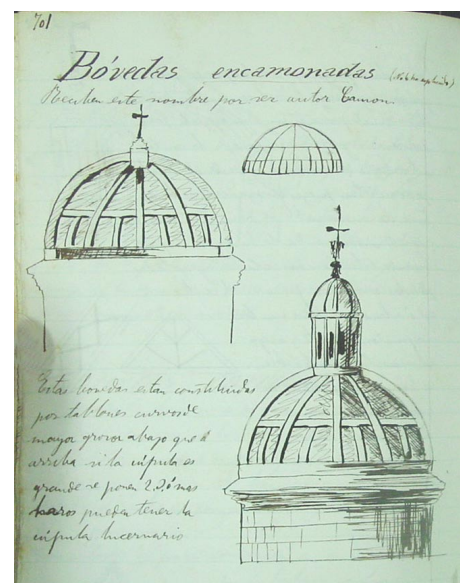 701
Bóvedas encamonadas
Reciben este nombre por ser autor Camon.
Estas bovedas estan constituidas
por tablones curvos de
mayor grosor abajo que
arriba si la cúpula es
grande se ponen 2.3. ó mas
pueden tener la
cúpula lucernario